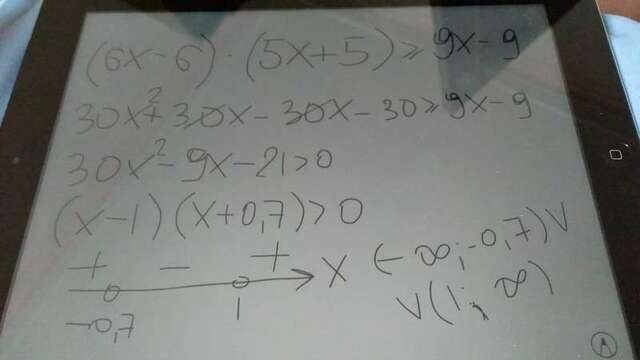 (6x-6)·(5x+5)≥9x-9
30x²+30x-30x-30≥9x-9
30x²-9x-21>0
(x-1)(x+0,7)>0
+ - + x (-∞;-0,7)∨
-0,7 1 ∨(1;∞)
A